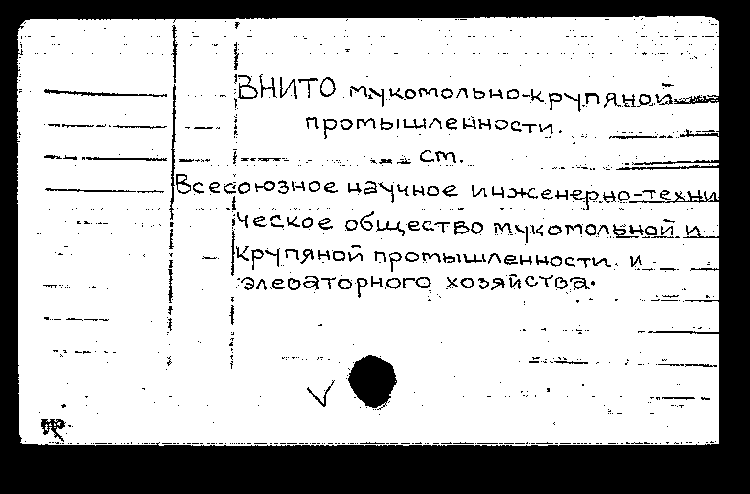 ВНИТО мукомольно-крупяной
промышленности.
ст.
Всесоюзное научное инженерно-техни
ческое общество мукомольной и
крупяной промышленности и
элеваторного хозяйства.